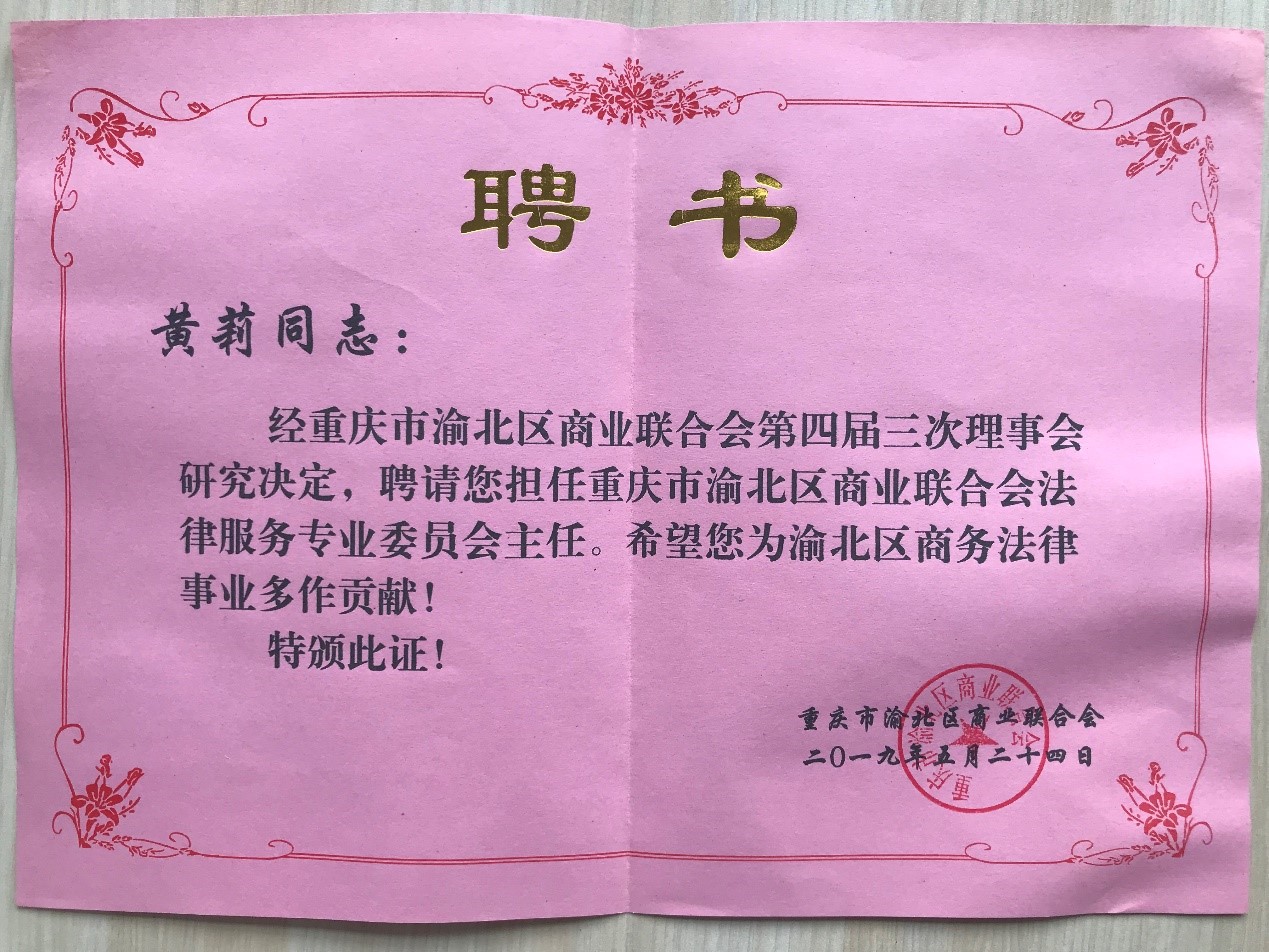 聘书
黄莉同志：
经重庆市渝北区商业联合会第四届三次理事会
研究决定，聘请您担任重庆市渝北区商业联合会法
律服务专业委员会主任。希望您为渝北区商务法律
事业多作贡献！
特颁此证！
重庆市渝北区商业联合会
二〇一九年五月二十四日
重庆市渝北区商业联合会